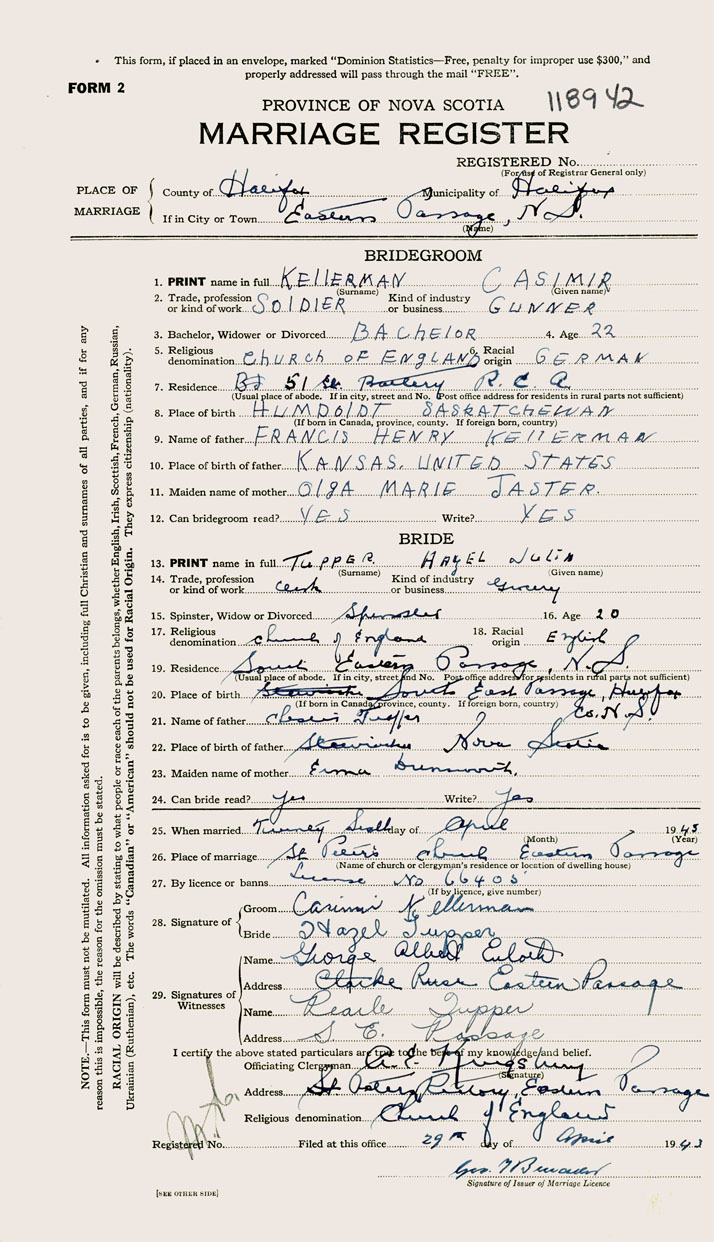 This form, if placed in an envelope, marked "Dominion Statistics—Free, penalty for improper use $300," and
properly addressed will pass through the mail "FREE".
FORM 2
118942
PROVINCE OF NOVA SCOTIA
MARRIAGE REGISTER
REGISTERED No.
(For use of Registrar General only)
PLACE OF MARRIAGE
County of Halifax Municipality of Halifax
If in City or Town Eastern Passage, N.S.
(Name)
BRIDEGROOM
1. PRINT name in full KELLERMAN CASIMIR
(Surname) (Given name)
2. Trade, profession or kind of work SOLDIER Kind of industry or business GUNNER
3. Bachelor, Widower or Divorced BACHELOR 4. Age 22
5. Religious denomination CHURCH OF ENGLAND 6. Racial origin GERMAN
7. Residence 51 Battery R.C.A.
(Usual place of abode. If in city, street and No. Post office address for residents in rural parts not sufficient)
8. Place of birth HUMDOLDT SASKATCHEWAN
(If born in Canada, province, county. If foreign born, country)
9. Name of father FRANCIS HENRY KELLERMAN
10. Place of birth of father KANSAS. UNITED STATES
11. Maiden name of mother OLGA MARIE JASTER.
12. Can bridegroom read? YES Write? YES
BRIDE
13. PRINT name in full TUPPER HAZEL JULIA
(Surname) (Given name)
14. Trade, profession or kind of work clerk Kind of industry or business Grocery
15. Spinster, Widow or Divorced Spinster 16. Age 20
17. Religious denomination church of England 18. Racial origin English
19. Residence South Eastern Passage, N.S.
(Usual place of abode. If in city, street and No. Post office address for residents in rural parts not sufficient)
20. Place of birth Stewiacke South East Passage, Halifax
(If born in Canada, province, county. If foreign born, country) Co. N.S.
21. Name of father Tupper
22. Place of birth of father Stewiacke Nova Scotia
23. Maiden name of mother Erma
24. Can bride read? Yes Write? Yes
25. When married Twenty day of April 1943
(Month) (Year)
26. Place of marriage St Peter's church Eastern Passage
(Name of church or clergyman's residence or location of dwelling house)
27. By licence or banns License No 66405
(If by licence, give number)
28. Signature of
Groom Casimir Kellerman
Bride Hazel Tupper
29. Signatures of Witnesses
Name George Albert
Address Eastern Passage
Name Pearle Tupper
Address S. E. Passage
I certify the above stated particulars are true to the best of my knowledge and belief.
Officiating Clergyman A. E. Kingsbury
(Signature)
Address St Peters Rectory, Eastern Passage
Religious denomination Church of England
Registered No. Filed at this office 29th day of April 1943
Geo.
Signature of Issuer of Marriage Licence
[SEE OTHER SIDE]
NOTE.—This form must not be mutilated. All information asked for is to be given, including full Christian and surnames of all parties, and if for any
reason this is impossible, the reason for the omission must be stated.
RACIAL ORIGIN will be described by stating to what people or race each of the parents belongs, whether English, Irish, Scottish, French, German, Russian,
Ukrainian (Ruthenian), etc. The words "Canadian" or "American" should not be used for Racial Origin. They express citizenship (nationality).